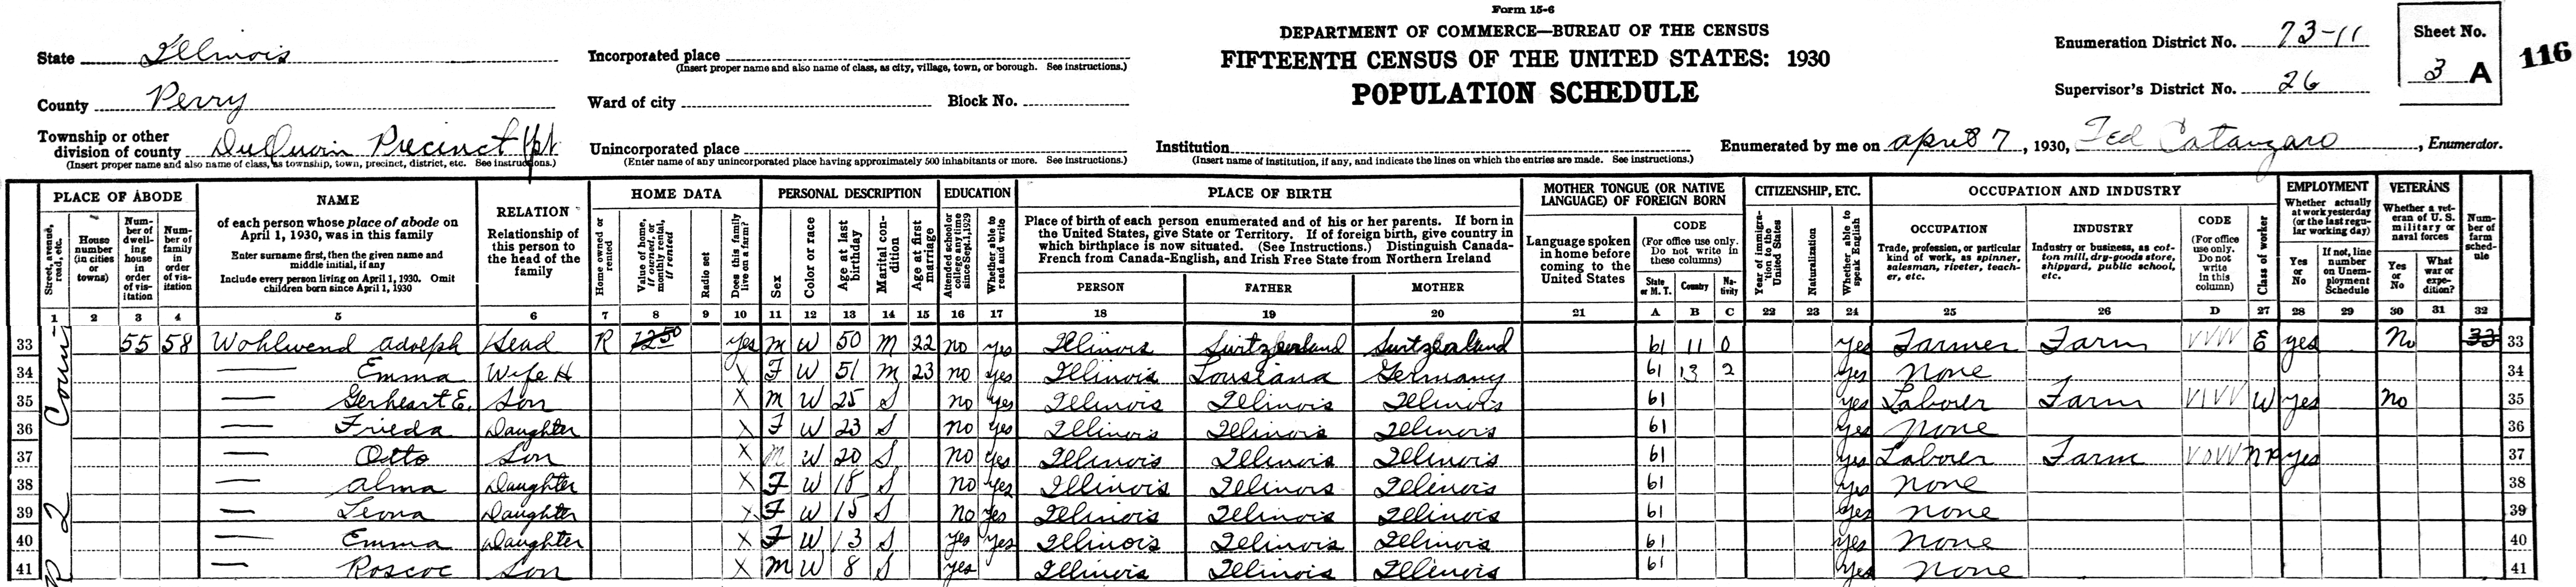 Form 15-6
DEPARTMENT OF COMMERCE—BUREAU OF THE CENSUS
FIFTEENTH CENSUS OF THE UNITED STATES: 1930
POPULATION SCHEDULE
State Illinois
County Perry
Township or other division of county DuQuoin Precinct pt
(Insert proper name and also name of class, as township, town, precinct, district, etc. See instructions.)
Incorporated place
(Insert proper name and also name of class, as city, village, town, or borough. See instructions.)
Ward of city Block No.
Unincorporated place
(Enter name of any unincorporated place having approximately 500 inhabitants or more. See instructions.)
Institution
(Insert name of institution, if any, and indicate the lines on which the entries are made. See instructions.)
Enumeration District No. 73-11
Supervisor's District No. 26
Sheet No.
3 A
116
Enumerated by me on april 7, 1930, Ted Catanzaro, Enumerator.
PLACE OF ABODE
Street, avenue, road, etc.
House number (in cities or towns)
Number of dwelling house in order of visitation
Number of family in order of visitation
NAME
of each person whose place of abode on April 1, 1930, was in this family
Enter surname first, then the given name and middle initial, if any
Include every person living on April 1, 1930. Omit children born since April 1, 1930
RELATION
Relationship of this person to the head of the family
HOME DATA
Home owned or rented
Value of home, if owned, or monthly rental, if rented
Radio set
Does this family live on a farm?
PERSONAL DESCRIPTION
Sex
Color or race
Age at last birthday
Marital condition
Age at first marriage
EDUCATION
Attended school or college any time since Sept. 1, 1929
Whether able to read and write
PLACE OF BIRTH
Place of birth of each person enumerated and of his or her parents. If born in the United States, give State or Territory. If of foreign birth, give country in which birthplace is now situated. (See Instructions.) Distinguish Canada-French from Canada-English, and Irish Free State from Northern Ireland
PERSON FATHER MOTHER
MOTHER TONGUE (OR NATIVE LANGUAGE) OF FOREIGN BORN
Language spoken in home before coming to the United States
CODE
(For office use only. Do not write in these columns)
State or M. T. Country Nativity
CITIZENSHIP, ETC.
Year of immigration to the United States
Naturalization
Whether able to speak English
OCCUPATION AND INDUSTRY
OCCUPATION
Trade, profession, or particular kind of work, as spinner, salesman, riveter, teacher, etc.
INDUSTRY
Industry or business, as cotton mill, dry-goods store, shipyard, public school, etc.
CODE
(For office use only. Do not write in this column)
Class of worker
EMPLOYMENT
Whether actually at work yesterday (or the last regular working day)
Yes or No
If not, line number on Unemployment Schedule
VETERANS
Whether a veteran of U. S. military or naval forces
Yes or No
What war or expedition?
Number of farm schedule
1 2 3 4 5 6 7 8 9 10 11 12 13 14 15 16 17 18 19 20 21 A B C 22 23 24 25 26 D 27 28 29 30 31 32
R 2
33 55 58 Wohlwend adolph Head R 1250 yes M W 50 M 22 no yes Illinois Switzerland Switzerland 61 11 0 yes Farmer Farm VVVV E yes No 33 33
34 — Emma Wife H X F W 51 M 23 no yes Illinois Lousiana Germany 61 13 2 yes none 34
35 — Gerheart E. Son X m W 25 S no yes Illinois Illinois Illinois 61 yes Laborer Farm VIVV W yes no 35
36 — Frieda Daughter X F W 23 S no yes Illinois Illinois Illinois 61 yes none 36
37 — Otto Son X m W 20 S no yes Illinois Illinois Illinois 61 yes Laborer Farm VOVV NP yes 37
38 — alma Daughter X F W 18 S no yes Illinois Illinois Illinois 61 yes none 38
39 — Leona Daughter X F W 15 S No yes Illinois Illinois Illinois 61 yes none 39
40 — Emma Daughter X F W 13 S yes yes Illinois Illinois Illinois 61 yes none 40
41 — Roscoe Son X m W 8 S yes Illinois Illinois Illinois 61 yes none 41